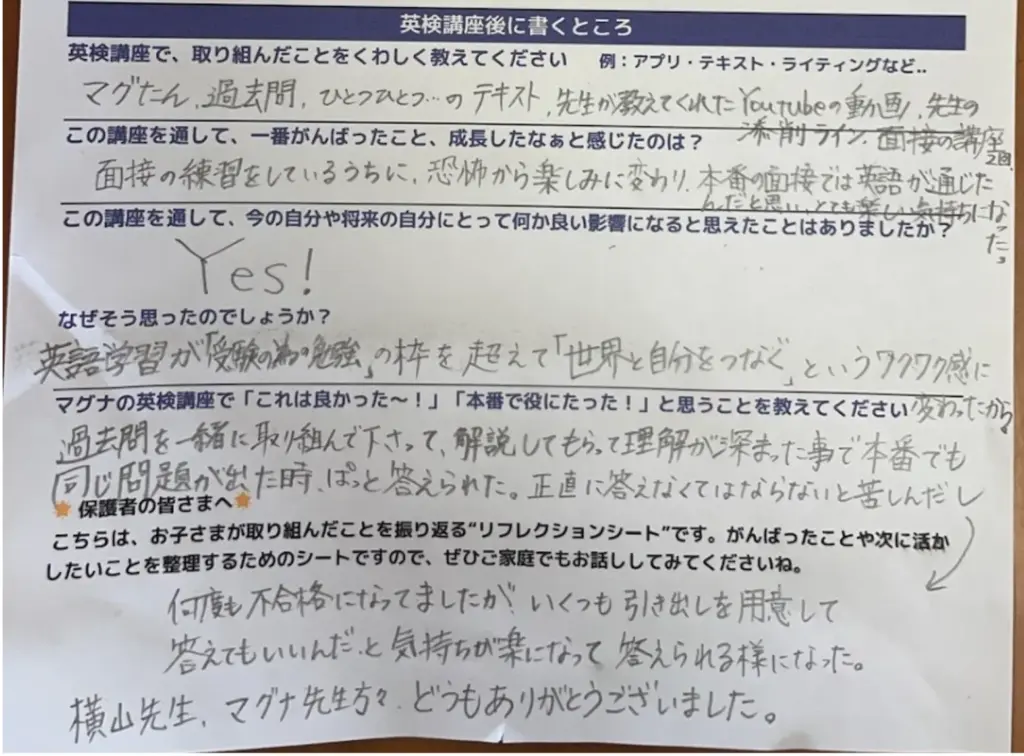 英検講座後に書くところ
英検講座で、取り組んだことをくわしく教えてください　例：アプリ・テキスト・ライティングなど..
マグたん、過去問、ひとつひとつ…のテキスト、先生が教えてくれたYoutubeの動画、先生の
添削ライン、面接の講座2回
この講座を通して、一番がんばったこと、成長したなぁと感じたのは？
面接の練習をしているうちに、恐怖から楽しみに変わり、本番の面接では英語が通じた
んだと思い、とても楽しい気持ちになった。
この講座を通して、今の自分や将来の自分にとって何か良い影響になると思えたことはありましたか？
Yes!
なぜそう思ったのでしょうか？
英語学習が「受験の為の勉強」の枠を超えて「世界と自分をつなぐ」というワクワク感に
変わったから。
マグナの英検講座で「これは良かった～！」「本番で役にたった！」と思うことを教えてください
過去問を一緒に取り組んで下さって、解説してもらって理解が深まった事で本番でも
同じ問題が出た時、ぱっと答えられた。正直に答えなくてはならないと苦しんだし
保護者の皆さまへ
こちらは、お子さまが取り組んだことを振り返る“リフレクションシート”です。がんばったことや次に活か
したいことを整理するためのシートですので、ぜひご家庭でもお話ししてみてくださいね。
何度も不合格になってましたが、いくつも引き出しを用意して
答えてもいいんだ、と気持ちが楽になって答えられる様になった。
横山先生、マグナ先生方々、どうもありがとうございました。